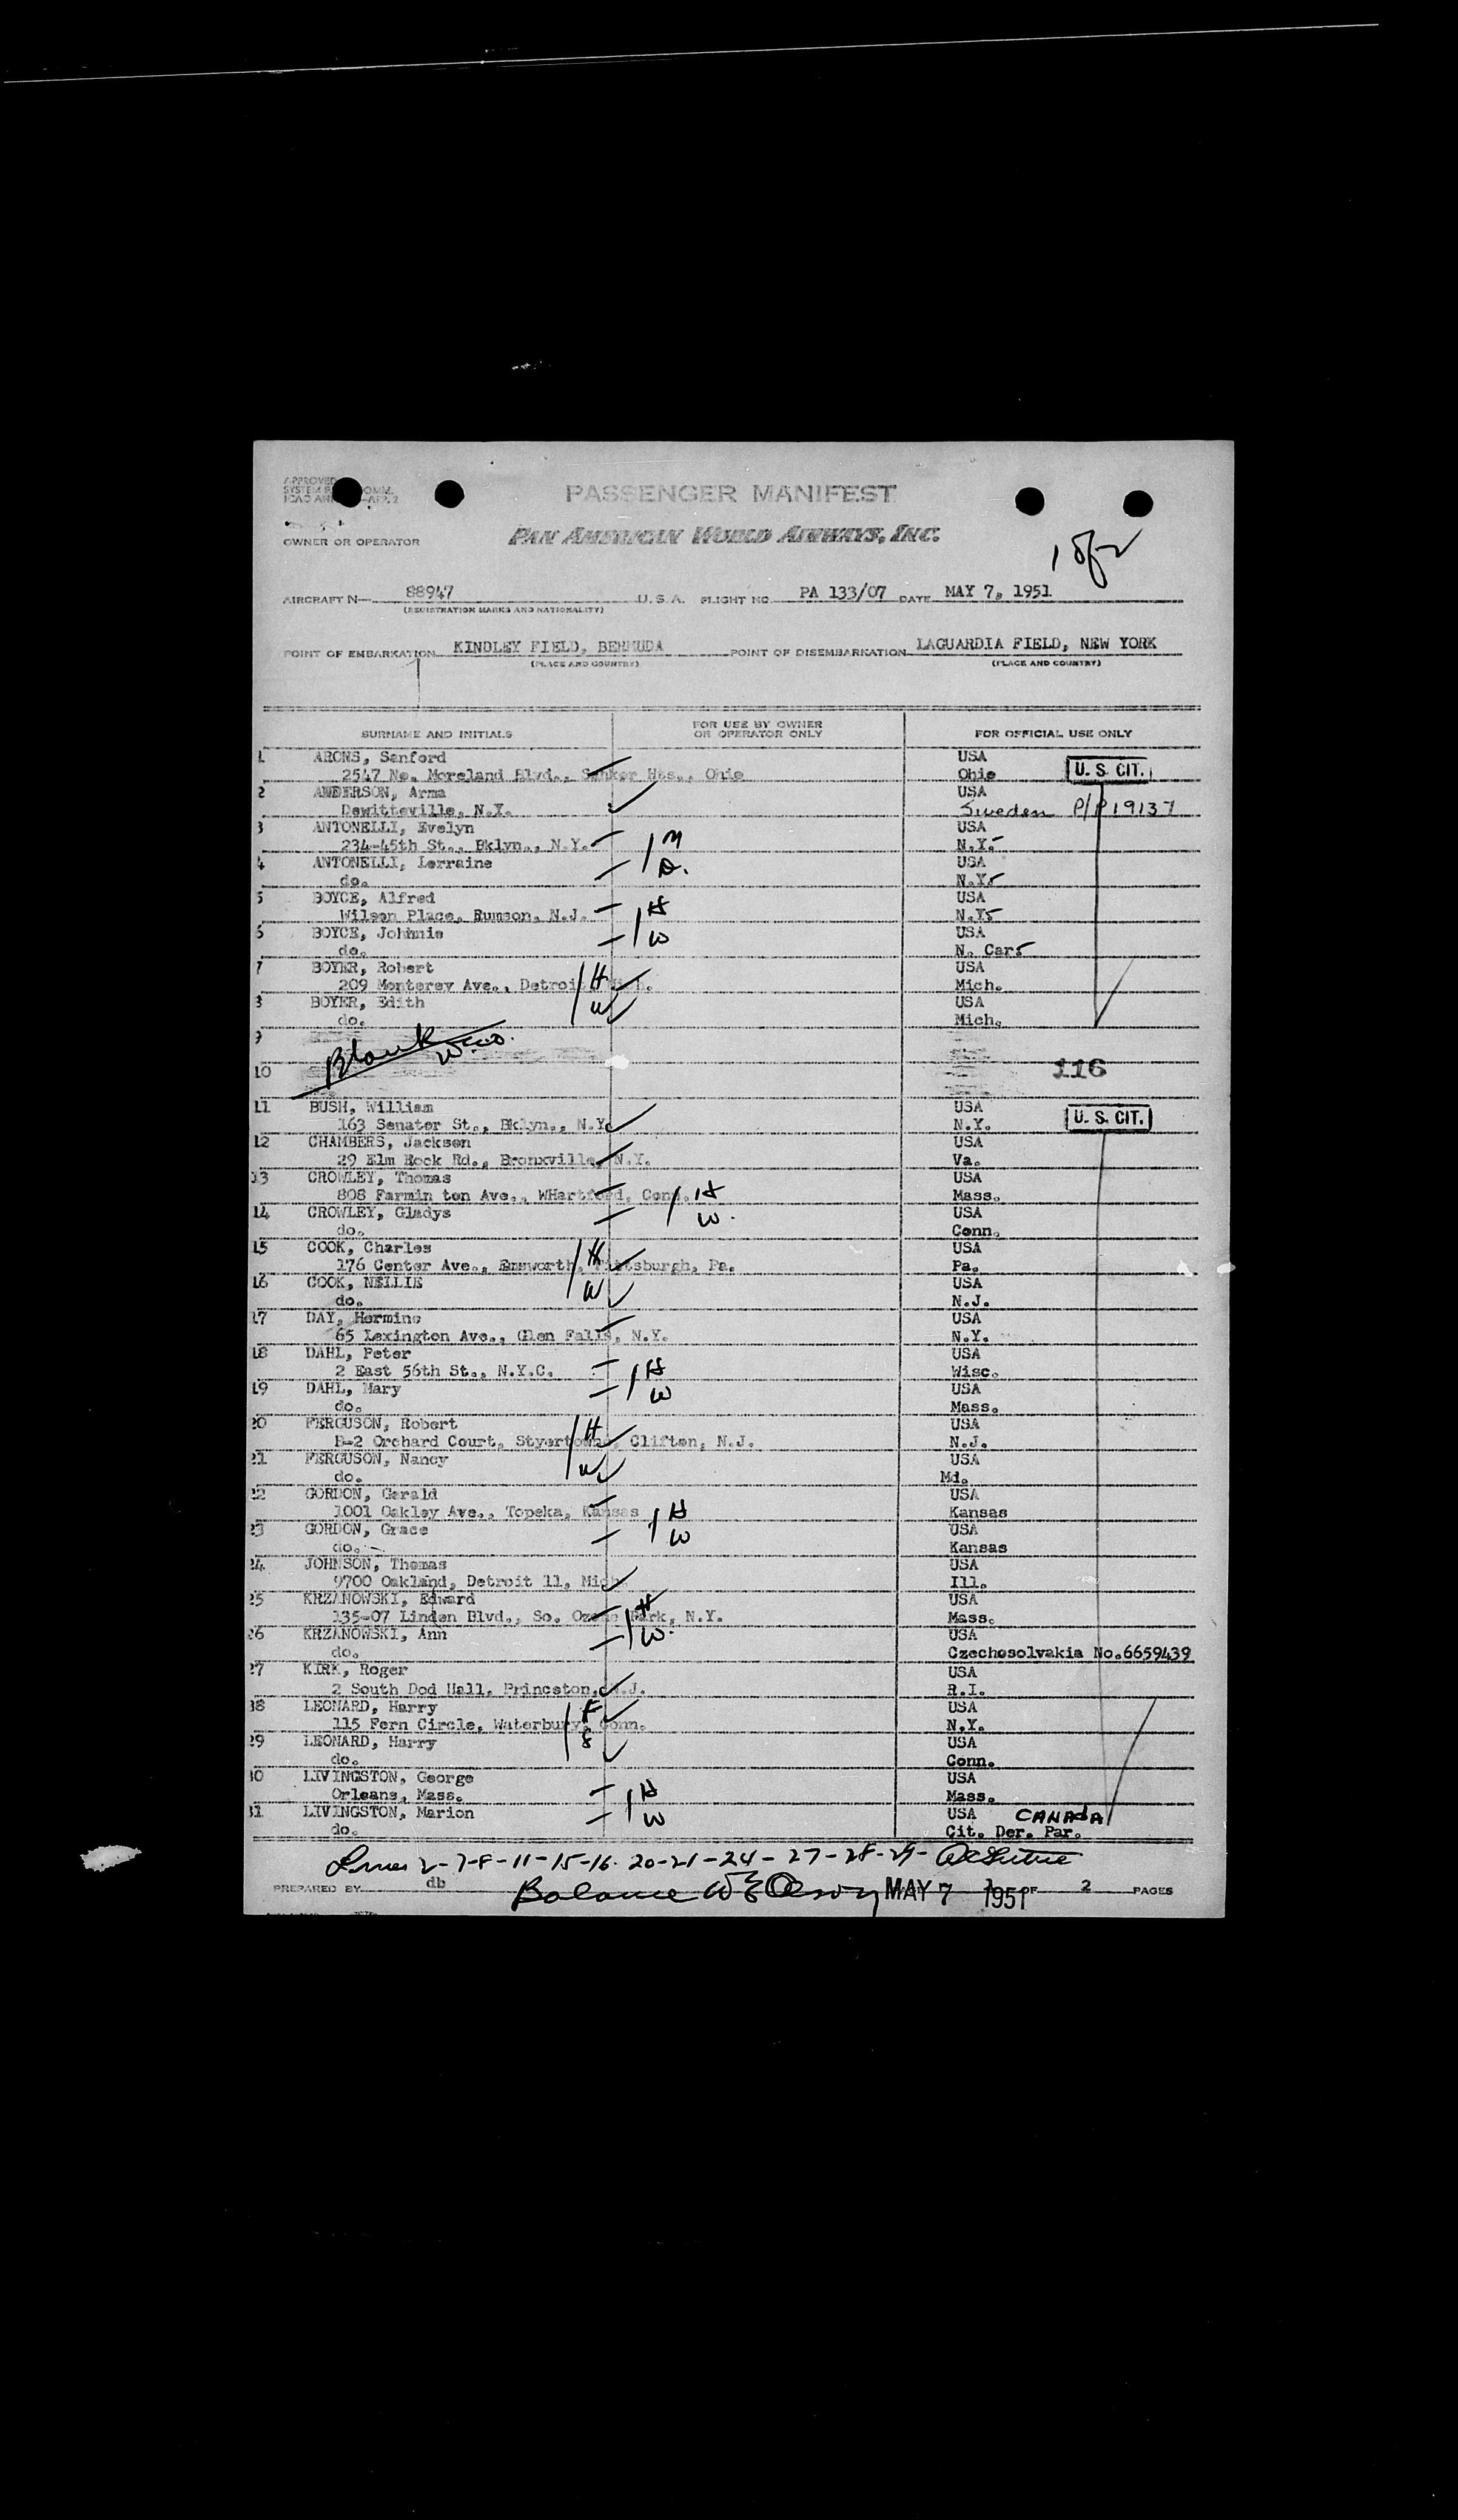 APPROVED
SYSTEM COMM.
ICAO AN —APP. 2
PASSENGER MANIFEST
OWNER OR OPERATOR PAN AMERICAN WORLD AIRWAYS, INC.
1 of 2
AIRCRAFT N— 88947 U.S.A. FLIGHT NO. PA 133/07 DATE MAY 7, 1951
(REGISTRATION MARKS AND NATIONALITY)
POINT OF EMBARKATION KINDLEY FIELD, BERMUDA POINT OF DISEMBARKATION LAGUARDIA FIELD, NEW YORK
(PLACE AND COUNTRY) (PLACE AND COUNTRY)
SURNAME AND INITIALS FOR USE BY OWNER OR OPERATOR ONLY FOR OFFICIAL USE ONLY
1 ARONS, Sanford USA
2547 No. Moreland Blvd., Shaker Hts., Ohio Ohio U. S. CIT.
2 ANDERSON, Arma USA
Dewitteville, N.Y. Sweden P/P 19137
3 ANTONELLI, Evelyn USA
234-45th St., Bklyn., N.Y. M N.Y.
4 ANTONELLI, Lorraine D. USA
do. N.Y.
5 BOYCE, Alfred USA
Wilson Place, Rumson, N.J. H N.Y.
6 BOYCE, Johnnie W USA
do. N. Car.
7 BOYER, Robert USA
209 Monterey Ave., Detroit H Mich.
8 BOYER, Edith W USA
do. Mich.
9 Blank
10 116
11 BUSH, William USA
163 Senator St., Bklyn., N.Y. N.Y. U. S. CIT.
12 CHAMBERS, Jackson USA
29 Elm Rock Rd., Bronxville, N.Y. Va.
13 CROWLEY, Thomas USA
808 Farmin ton Ave., WHartford, Conn. H Mass.
14 CROWLEY, Gladys W. USA
do. Conn.
15 COOK, Charles H USA
176 Center Ave., Emsworth, Pittsburgh, Pa. Pa.
16 COOK, NELLIE W USA
do. N.J.
17 DAY, Hermine USA
65 Lexington Ave., Glen Falls, N.Y. N.Y.
18 DAHL, Peter USA
2 East 56th St., N.Y.C. H Wisc.
19 DAHL, Mary W USA
do. Mass.
20 FERGUSON, Robert H USA
B-2 Orchard Court, Styertowne, Clifton, N.J. N.J.
21 FERGUSON, Nancy W USA
do. Md.
22 GORDON, Gerald USA
1001 Oakley Ave., Topeka, Kansas H Kansas
23 GORDON, Grace W USA
do. Kansas
24 JOHNSON, Thomas USA
9700 Oakland, Detroit 11, Mich. Ill.
25 KRZANOWSKI, Edward H USA
135-07 Linden Blvd., So. Ozone Park, N.Y. Mass.
26 KRZANOWSKI, Ann W. USA
do. Czechosolvakia No.6659439
27 KIRK, Roger USA
2 South Dod Hall, Princeton, N.J. R.I.
28 LEONARD, Harry F USA
115 Fern Circle, Waterbury, Conn. N.Y.
29 LEONARD, Harry S USA
do. Conn.
30 LIVINGSTON, George USA
Orleans, Mass. H Mass.
31 LIVINGSTON, Marion W USA CANADA
do. Cit. Der. Par.
Lines 2-7-8-11-15-16-20-21-24-27-28-29-
PREPARED BY db Balance W E Olson MAY 7 1951 1 OF 2 PAGES